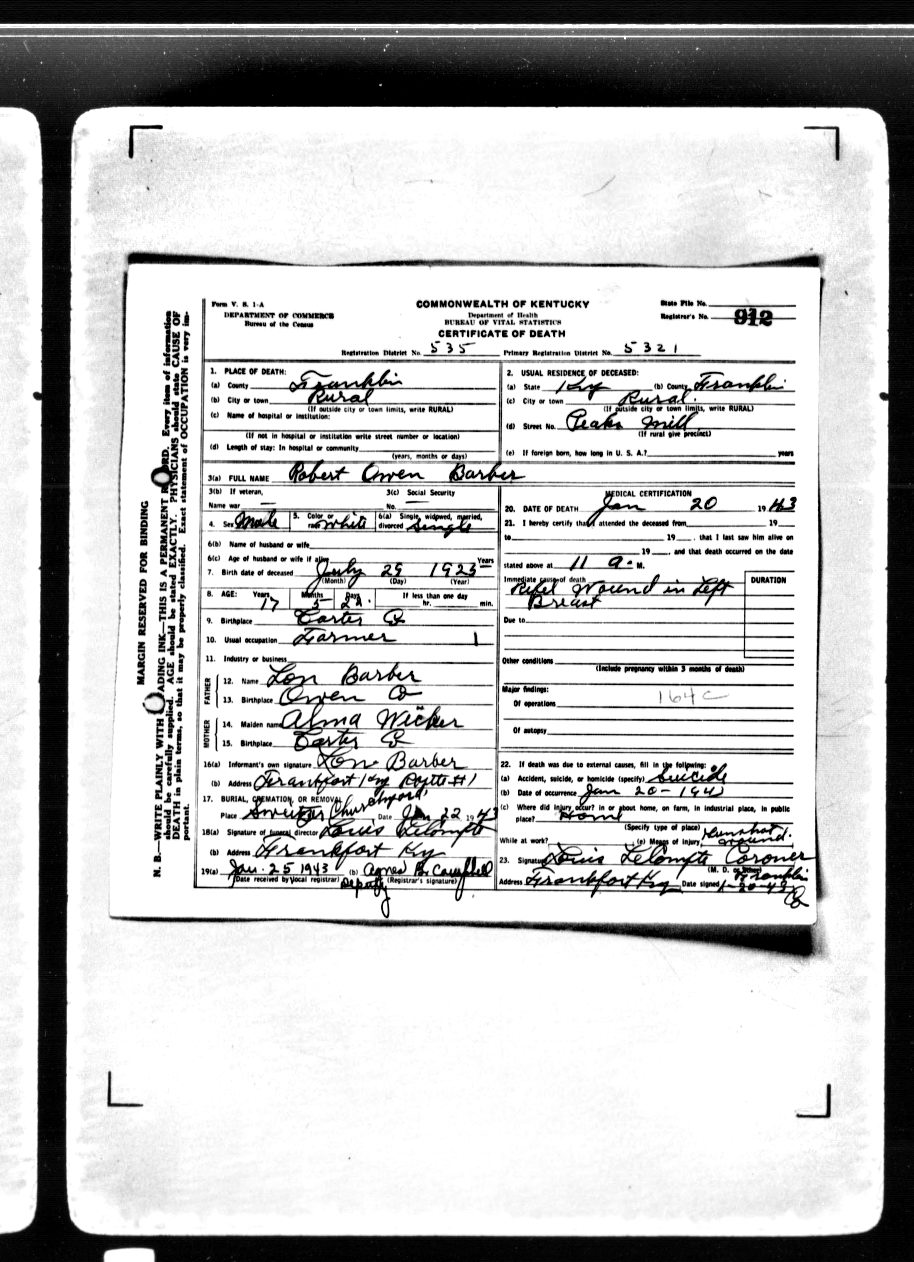 Form V. S. 1-A
DEPARTMENT OF COMMERCE
Bureau of the Census
COMMONWEALTH OF KENTUCKY
Department of Health
BUREAU OF VITAL STATISTICS
CERTIFICATE OF DEATH
State File No.
Registrar's No. 912
Registration District No. 535 Primary Registration District No. 5321
MARGIN RESERVED FOR BINDING
N. B.—WRITE PLAINLY WITH ADING INK—THIS IS A PERMANENT R RD. Every item of information
should be carefully supplied. AGE should be stated EXACTLY. PHYSICIANS should state CAUSE OF
DEATH in plain terms, so that it may be properly classified. Exact statement of OCCUPATION is very im-
portant.
1. PLACE OF DEATH:
(a) County Franklin
(b) City or town Rural
(If outside city or town limits, write RURAL)
(c) Name of hospital or institution:
(If not in hospital or institution write street number or location)
(d) Length of stay: In hospital or community
(years, months or days)
2. USUAL RESIDENCE OF DECEASED:
(a) State Ky (b) County Franklin
(c) City or town Rural.
(If outside city or town limits, write RURAL)
(d) Street No. Peaks Mill
(If rural give precinct)
(e) If foreign born, how long in U. S. A.? years
3(a) FULL NAME Robert Owen Barber
3(b) If veteran,
Name war —
3(c) Social Security
No. —
4. Sex Male 5. Color or race White 6(a) Single, widowed, married, divorced Single
6(b) Name of husband or wife
6(c) Age of husband or wife if alive Years
7. Birth date of deceased July 29 1925
(Month) (Day) (Year)
8. AGE: Years 17 Months 5 Days If less than one day
hr. min.
9. Birthplace Carter Co
10. Usual occupation Farmer 1
11. Industry or business
FATHER
12. Name Lon Barber
13. Birthplace Owen Co
MOTHER
14. Maiden name Alma Wicker
15. Birthplace Carter Co
16(a) Informant's own signature Lon Barber
(b) Address Frankfort Ky Route #1
17. BURIAL, CREMATION, OR REMOVAL
Place Churchyard Date Jan 22 1943
18(a) Signature of funeral director Louis LeCompte
(b) Address Frankfort Ky
19(a) Jan. 25 1943 (b) Agnes B. Campbell
(Date received by local registrar) Deputy (Registrar's signature)
MEDICAL CERTIFICATION
20. DATE OF DEATH Jan 20 1943
21. I hereby certify that I attended the deceased from 19
to 19 , that I last saw him alive on
19 , and that death occurred on the date
stated above at 11 a. M.
Immediate cause of death
Rifel Wound in Left
Breast
DURATION
Due to
Other conditions
(Include pregnancy within 3 months of death)
Major findings:
Of operations 164c
Of autopsy
22. If death was due to external causes, fill in the following:
(a) Accident, suicide, or homicide (specify) Suicide
(b) Date of occurrence Jan 20 - 1943
(c) Where did injury occur? in or about home, on farm, in industrial place, in public
place? Home
(Specify type of place)
While at work? (e) Means of Injury Gunshot wound.
23. Signature Louis LeCompte Coroner
(M. D. or other) Franklin Co
Address Frankfort Ky Date signed 1-20-43